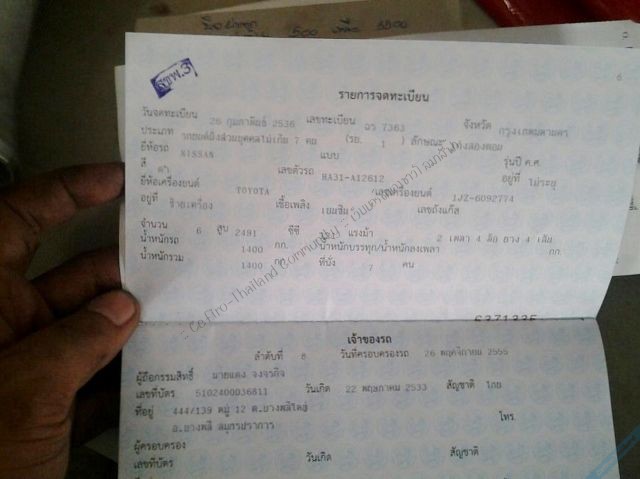 500 เหลือ 3500
สขพ.3
6
รายการจดทะเบียน
วันจดทะเบียน 26 กุมภาพันธ์ 2536 เลขทะเบียน 7363 จังหวัด กรุงเทพมหานคร
ประเภท รถยนต์นั่งส่วนบุคคลไม่เกิน 7 คน (รย. 1 ) ลักษณะ เก๋งสองตอน
ยี่ห้อรถ NISSAN แบบ รุ่นปี ค.ศ.
สี ดำ เลขตัวรถ HA31-A12612 อยู่ที่ ไม่ระบุ
ยี่ห้อเครื่องยนต์ TOYOTA เลขเครื่องยนต์ 1JZ-6092774
อยู่ที่ ซ้ายเครื่อง เชื้อเพลิง เบนซิน เลขถังแก๊ส
จำนวน 6 สูบ 2491 ซีซี แรงม้า 2 เพลา 4 ล้อ ยาง 4 เส้น
น้ำหนักรถ 1400 กก. น้ำหนักบรรทุก/น้ำหนักลงเพลา กก.
น้ำหนักรวม 1400 กก. ที่นั่ง 7 คน
Cefiro-Thailand Community
6371335
เจ้าของรถ
ลำดับที่ 8 วันที่ครอบครองรถ 26 พฤศจิกายน 2555
ผู้ถือกรรมสิทธิ์ นายแดง จงจรกิจ
เลขที่บัตร 5102400036811 วันเกิด 22 พฤษภาคม 2533 สัญชาติ ไทย
ที่อยู่ 444/139 หมู่ 12 ต.บางพลีใหญ่
โทร.
อ.บางพลี สมุทรปราการ
ผู้ครอบครอง
เลขที่บัตร วันเกิด สัญชาติ